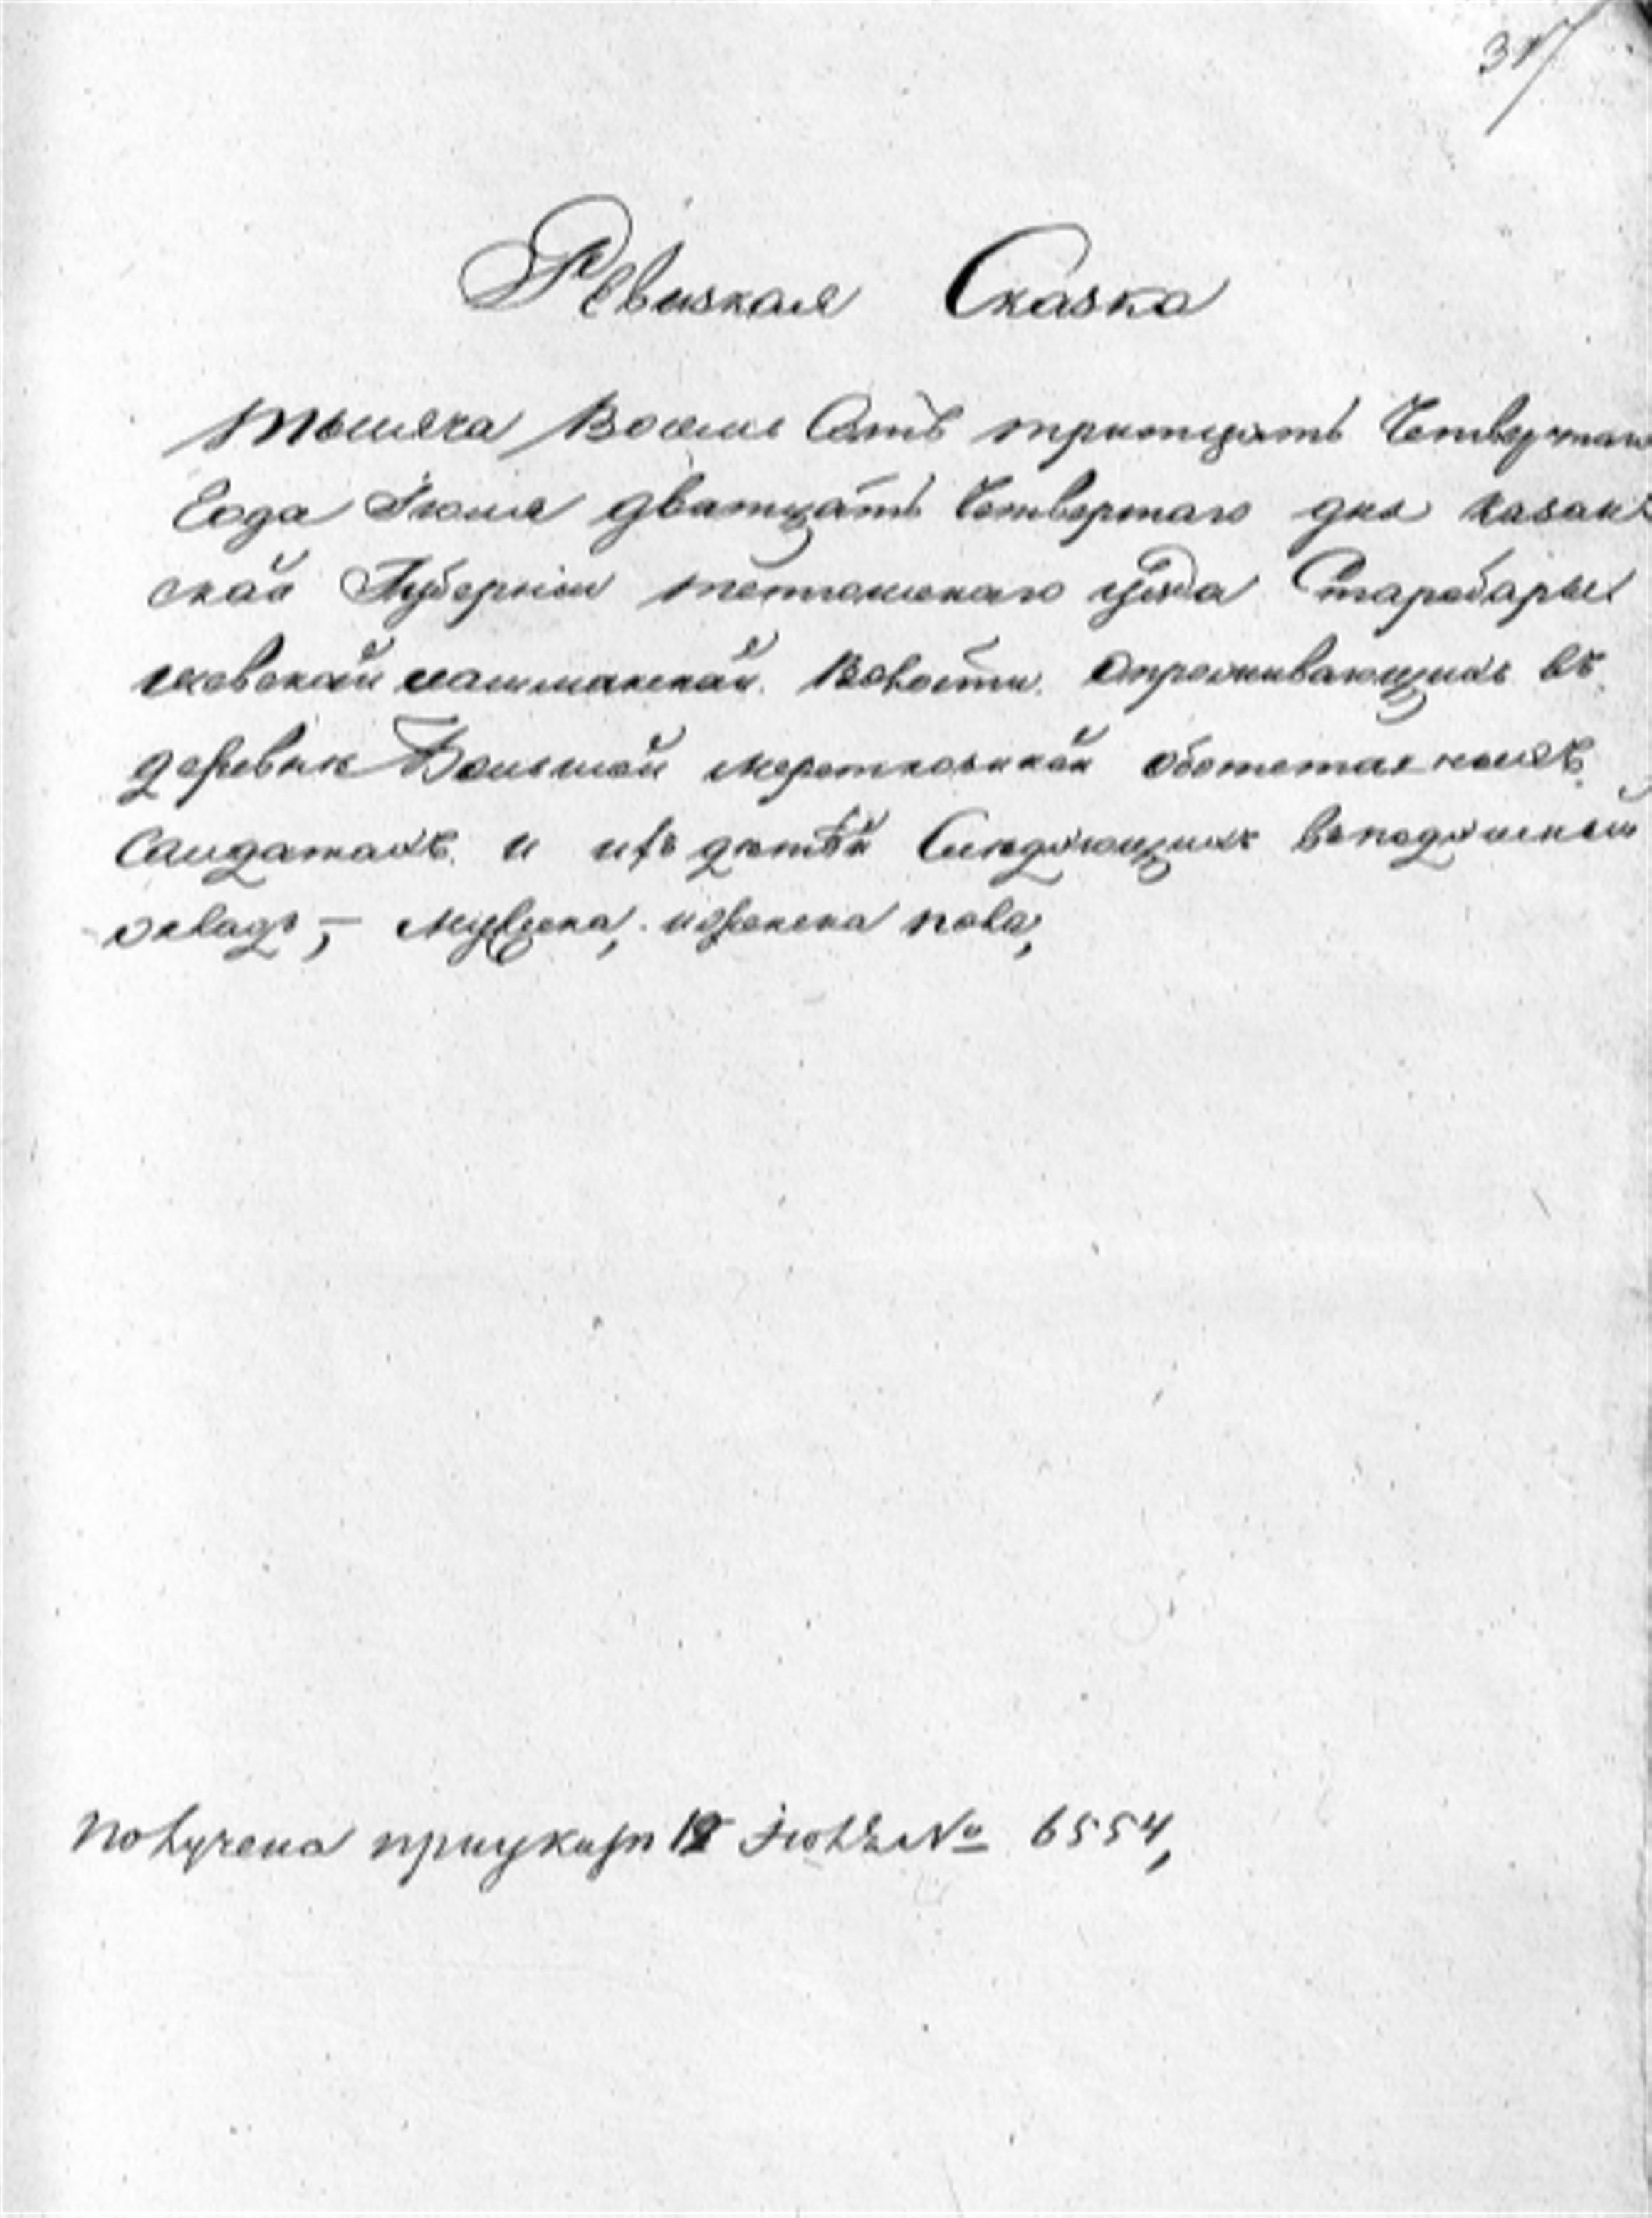 317
Ревизкая Сказка
тысяча Восемь Сотъ тритцать Четвертаго
Года Июня дватцать Четвертаго дня казан
ской Губернии тетюшскаго уезда Старобары
шевской лашманской Волости. опроживающихъ въ
деревне Большой мереткозиной оботставныхъ
Салдатахъ и ихъ детей Следующихъ въподушной
окладъ, – Мужеска, иженска пола,
получена приуказе 12 Июля № 6554,